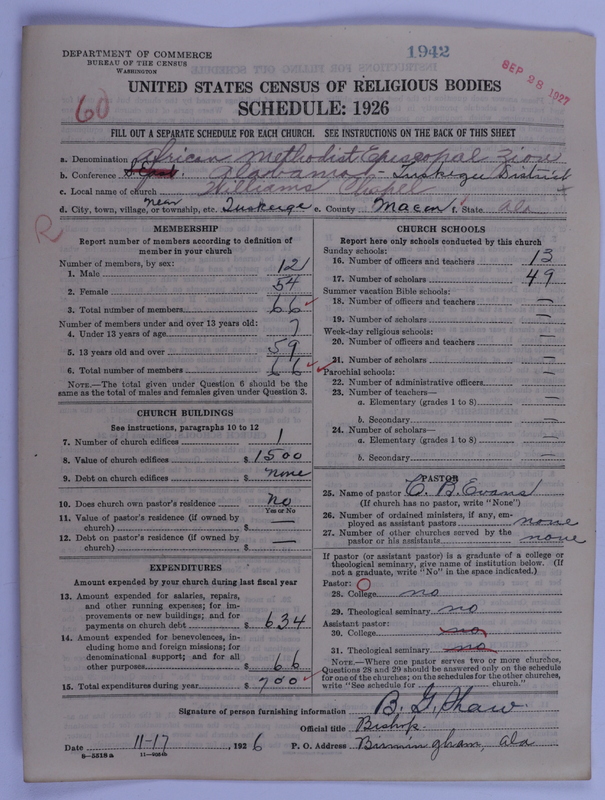 DEPARTMENT OF COMMERCE
BUREAU OF THE CENSUS
WASHINGTON
1942
SEP 28 1927
60
UNITED STATES CENSUS OF RELIGIOUS BODIES
SCHEDULE: 1926
FILL OUT A SEPARATE SCHEDULE FOR EACH CHURCH. SEE INSTRUCTIONS ON THE BACK OF THIS SHEET
a. Denomination African Methodist Episcopal Zion
b. Conference S. East. Alabama - Tuskegee District
c. Local name of church Williams Chapel
d. City, town, village, or township, etc. near Tuskeege e. County Macon f. State Ala
R
MEMBERSHIP
Report number of members according to definition of
member in your church
Number of members, by sex:
1. Male 12
2. Female 54
3. Total number of members 66
Number of members under and over 13 years old:
4. Under 13 years of age 7
5. 13 years old and over 59
6. Total number of members 66
NOTE.—The total given under Question 6 should be the
same as the total of males and females given under Question 3.
CHURCH BUILDINGS
See instructions, paragraphs 10 to 12
7. Number of church edifices 1
8. Value of church edifices $ 1500
9. Debt on church edifices $ none
10. Does church own pastor's residence No
Yes or No
11. Value of pastor's residence (if owned by
church) $ —
12. Debt on pastor's residence (if owned by
church) $ —
EXPENDITURES
Amount expended by your church during last fiscal year
13. Amount expended for salaries, repairs,
and other running expenses; for im-
provements or new buildings; and for
payments on church debt $ 634
14. Amount expended for benevolences, in-
cluding home and foreign missions; for
denominational support; and for all
other purposes $ 66
15. Total expenditures during year $ 700
CHURCH SCHOOLS
Report here only schools conducted by this church
Sunday schools:
16. Number of officers and teachers 13
17. Number of scholars 49
Summer vacation Bible schools:
18. Number of officers and teachers —
19. Number of scholars —
Week-day religious schools:
20. Number of officers and teachers —
21. Number of scholars —
Parochial schools:
22. Number of administrative officers —
23. Number of teachers—
a. Elementary (grades 1 to 8) —
b. Secondary —
24. Number of scholars—
a. Elementary (grades 1 to 8) —
b. Secondary —
PASTOR
25. Name of pastor C. B. Evans
(If church has no pastor, write "None")
26. Number of ordained ministers, if any, em-
ployed as assistant pastors none
27. Number of other churches served by the
pastor or his assistants none
If pastor (or assistant pastor) is a graduate of a college or
theological seminary, give name of institution below. (If
not a graduate, write "No" in the space indicated.)
Pastor:
28. College no
29. Theological seminary no
Assistant pastor:
30. College no
31. Theological seminary no
NOTE.—Where one pastor serves two or more churches,
Questions 28 and 29 should be answered only on the schedule
for one of the churches; on the schedules for the other churches,
write "See schedule for church."
Signature of person furnishing information B. G. Shaw
Official title Bishop
Date 11-17, 1926 P. O. Address Birmingham, Ala
8—5518a